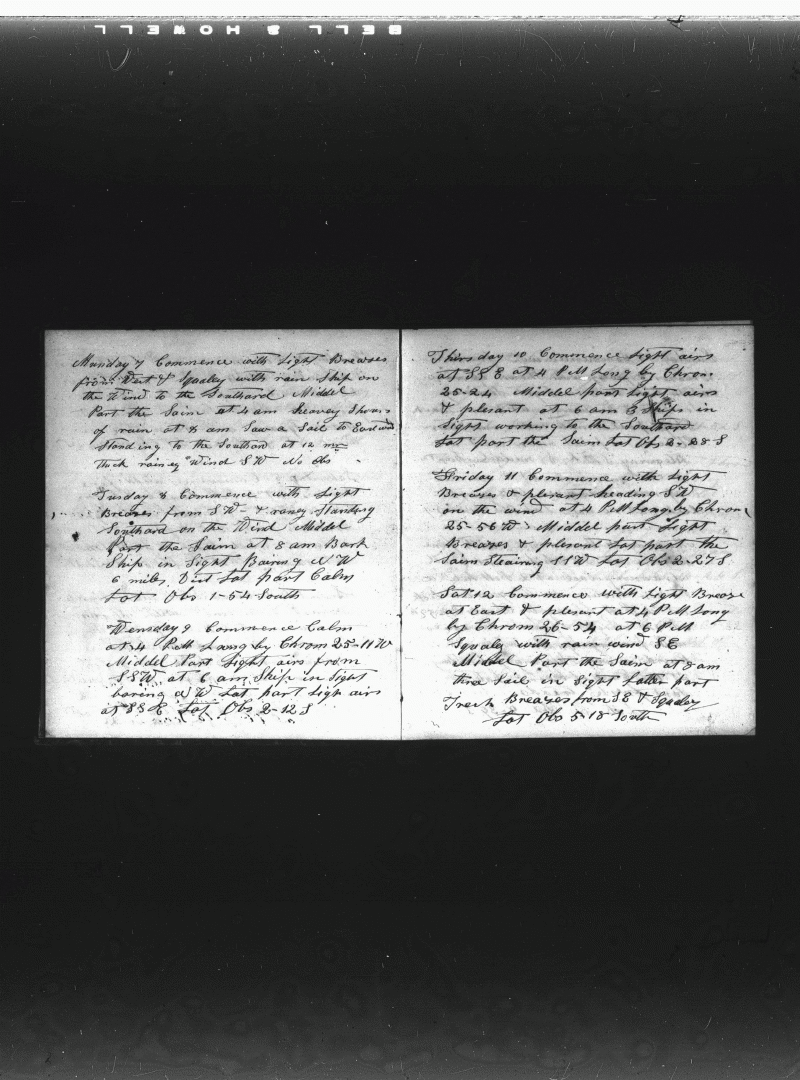 BELL & HOWELL
Munday 7 Commence with Light Breases
from West & Squaley with rain Ship on
the Wind to the Southard Middel
Part the Saim at 4 am heavey Shours
of rain at 8 am Saw a Sail to Eastward
Standing to the Southard at 12 m
thick rainey Wind SW No Obs
Tusday 8 Commence with Light
Breases from SW & raney Standing
Southard on the Wind Middel
Part the Saim at 8 am Bark
Ship in Sight Bairing NW
6 miles Dist Lat part Calm
Lat Obs 1-54 South
Wensday 9 Commence Calm
at 4 P.M Long by Chrom 25-11 W
Middel Part Light airs from
SSW at 6 am Ship in Sight
baring NW Lat part Ligh airs
at SSE Lat Obs 2-12 S
Thirsday 10 Commence Light airs
at SSE at 4 P.M Long by Chrom
25-24 Middel part Light airs
& plesant at 6 am 3 Ships in
Sight working to the Southard
Lat part the Saim Lat Obs 2-28 S
Friday 11 Commence with Light
Breases & plesant heading SW
on the wind at 4 P.M Long by Chrom
25-56 W Middel part Light
Breases & plesent Lat part the
Saim Steairing SSW Lat Obs 2-27 S
Sat 12 Commence with Light Brease
at East & plesent at 4 P.M Long
by Chrom 26-54 at 6 P.M
Squaley with rain wind SE
Middel Part the Saim at 8 am
thre Sail in Sight Latter part
Fresh Breases from SE & Squaley
Lat Obs 5-18 South